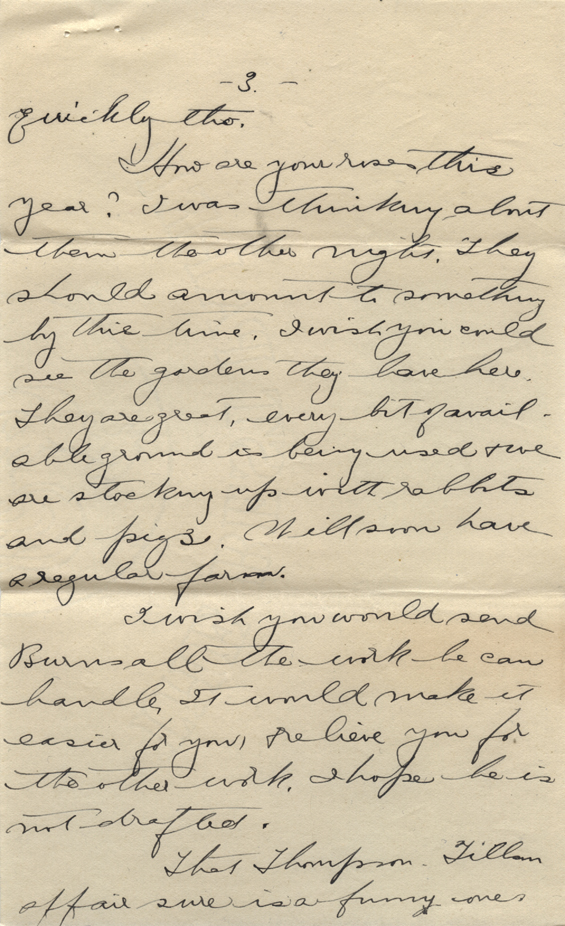 -3.-
quickly tho.
How are your roses this
year? I was thinking about
them the other night. They
should amount to something
by this time. I wish you could
see the gardens they have here.
They are great, every bit of avail-
able ground is being used & we
are stocking up with rabbits
and pigs. Will soon have
a regular farm.
I wish you would send
Burns all the work he can
handle, It would make it
easier for you, & relieve you for
the other work. I hope he is
not drafted.
That Thompson-Tillan
affair sure is a funny one